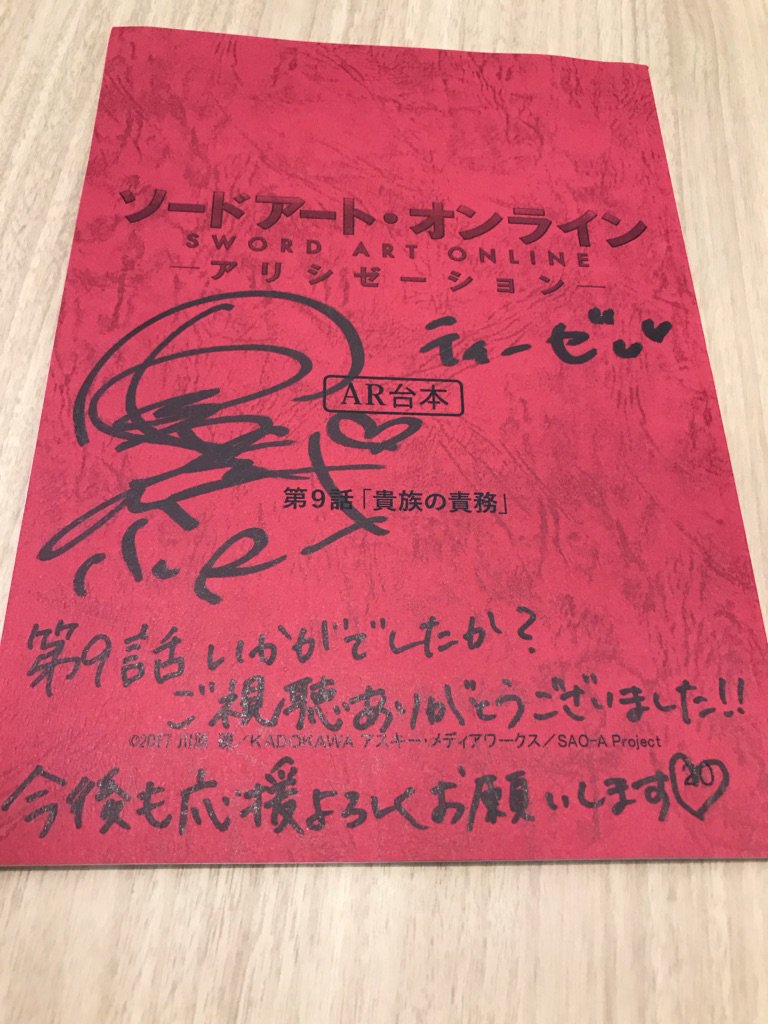 ソードアート・オンライン
SWORD ART ONLINE
―アリシゼーション―
ティーゼ
AR台本
第9話「貴族の責務」
第9話いかがでしたか?
ご視聴ありがとうございました!!
©2017 川原 礫/KADOKAWA アスキー・メディアワークス/SAO-A Project
今後も応援よろしくお願いします